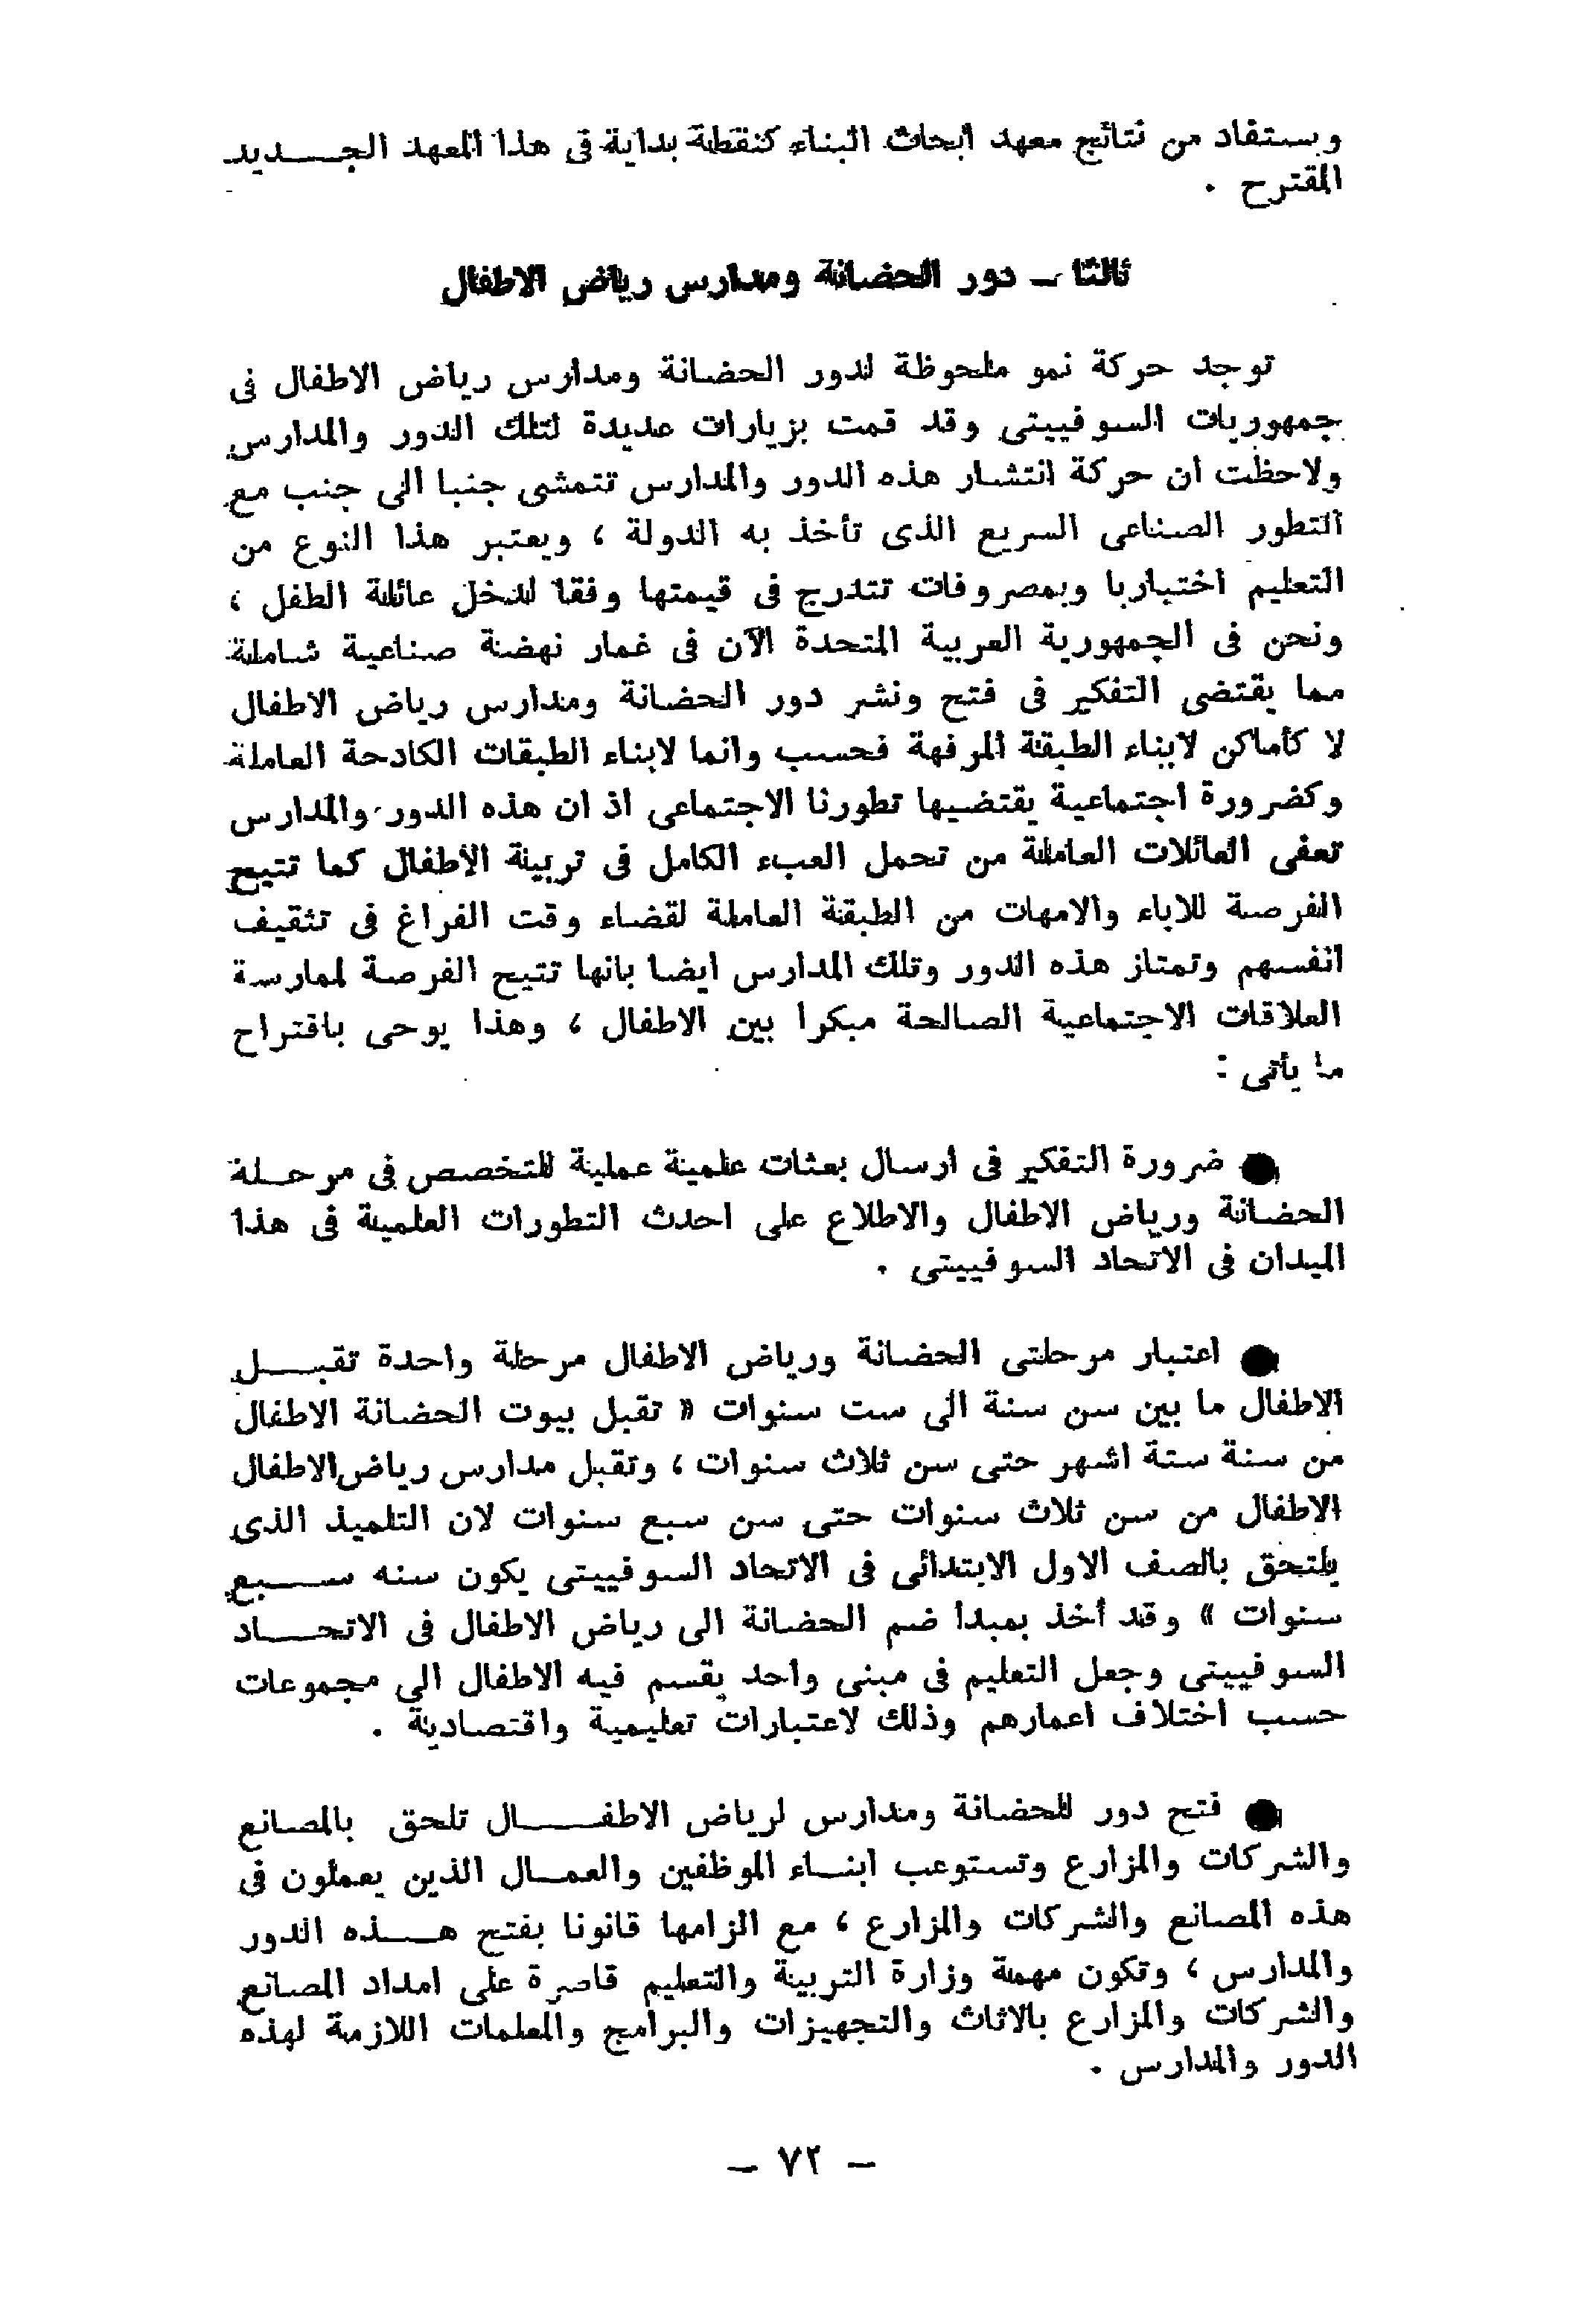 ويستفاد من نتائج معهد ابحاث البناء كنقطة بداية فى هذا المعهد الجديد
المقترح .
ثالثا — دور الحضانة ومدارس رياض الاطفال
توجد حركة نمو ملحوظة لدور الحضانة ومدارس رياض الاطفال فى
جمهوريات السوفييتى وقد قمت بزيارات عديدة لتلك الدور والمدارس
ولاحظت ان حركة انتشار هذه الدور والمدارس تتمشى جنبا الى جنب مع
التطور الصناعى السريع الذى تأخذ به الدولة ، ويعتبر هذا النوع من
التعليم اختياريا وبمصروفات تتدرج فى قيمتها وفقا لدخل عائلة الطفل ،
ونحن فى الجمهورية العربية المتحدة الآن فى غمار نهضة صناعية شاملة
مما يقتضى التفكير فى فتح ونشر دور الحضانة ومدارس رياض الاطفال
لا كأماكن لابناء الطبقة المرفهة فحسب وانما لابناء الطبقات الكادحة العاملة
وكضرورة اجتماعية يقتضيها تطورنا الاجتماعى اذ ان هذه الدور والمدارس
تعفى العائلات العاملة من تحمل العبء الكامل فى تربية الأطفال كما تتيح
الفرصة للاباء والامهات من الطبقة العاملة لقضاء وقت الفراغ فى تثقيف
انفسهم وتمتاز هذه الدور وتلك المدارس ايضا بانها تتيح الفرصة لممارسة
العلاقات الاجتماعية الصالحة مبكرا بين الاطفال ، وهذا يوحى باقتراح
ما يأتى :
● ضرورة التفكير فى ارسال بعثات علمية عملية للتخصص فى مرحلة
الحضانة ورياض الاطفال والاطلاع على احدث التطورات العلمية فى هذا
الميدان فى الاتحاد السوفييتى .
● اعتبار مرحلتى الحضانة ورياض الاطفال مرحلة واحدة تقبل
الاطفال ما بين سن سنة الى ست سنوات « تقبل بيوت الحضانة الاطفال
من سنة ستة اشهر حتى سن ثلاث سنوات ، وتقبل مدارس رياض الاطفال
الاطفال من سن ثلاث سنوات حتى سن سبع سنوات لان التلميذ الذى
يلتحق بالصف الاول الابتدائى فى الاتحاد السوفييتى يكون سنه سبع
سنوات » وقد أخذ بمبدأ ضم الحضانة الى رياض الاطفال فى الاتحاد
السوفييتى وجعل التعليم فى مبنى واحد يقسم فيه الاطفال الى مجموعات
حسب اختلاف اعمارهم وذلك لاعتبارات تعليمية واقتصادية .
● فتح دور للحضانة ومدارس لرياض الاطفال تلحق بالمصانع
والشركات والمزارع وتستوعب ابناء الموظفين والعمال الذين يعملون فى
هذه المصانع والشركات والمزارع ، مع الزامها قانونا بفتح هذه الدور
والمدارس ، وتكون مهمة وزارة التربية والتعليم قاصرة على امداد المصانع
والشركات والمزارع بالاثاث والتجهيزات والبرامج والمعلمات اللازمة لهذه
الدور والمدارس .
— ٧٢ —